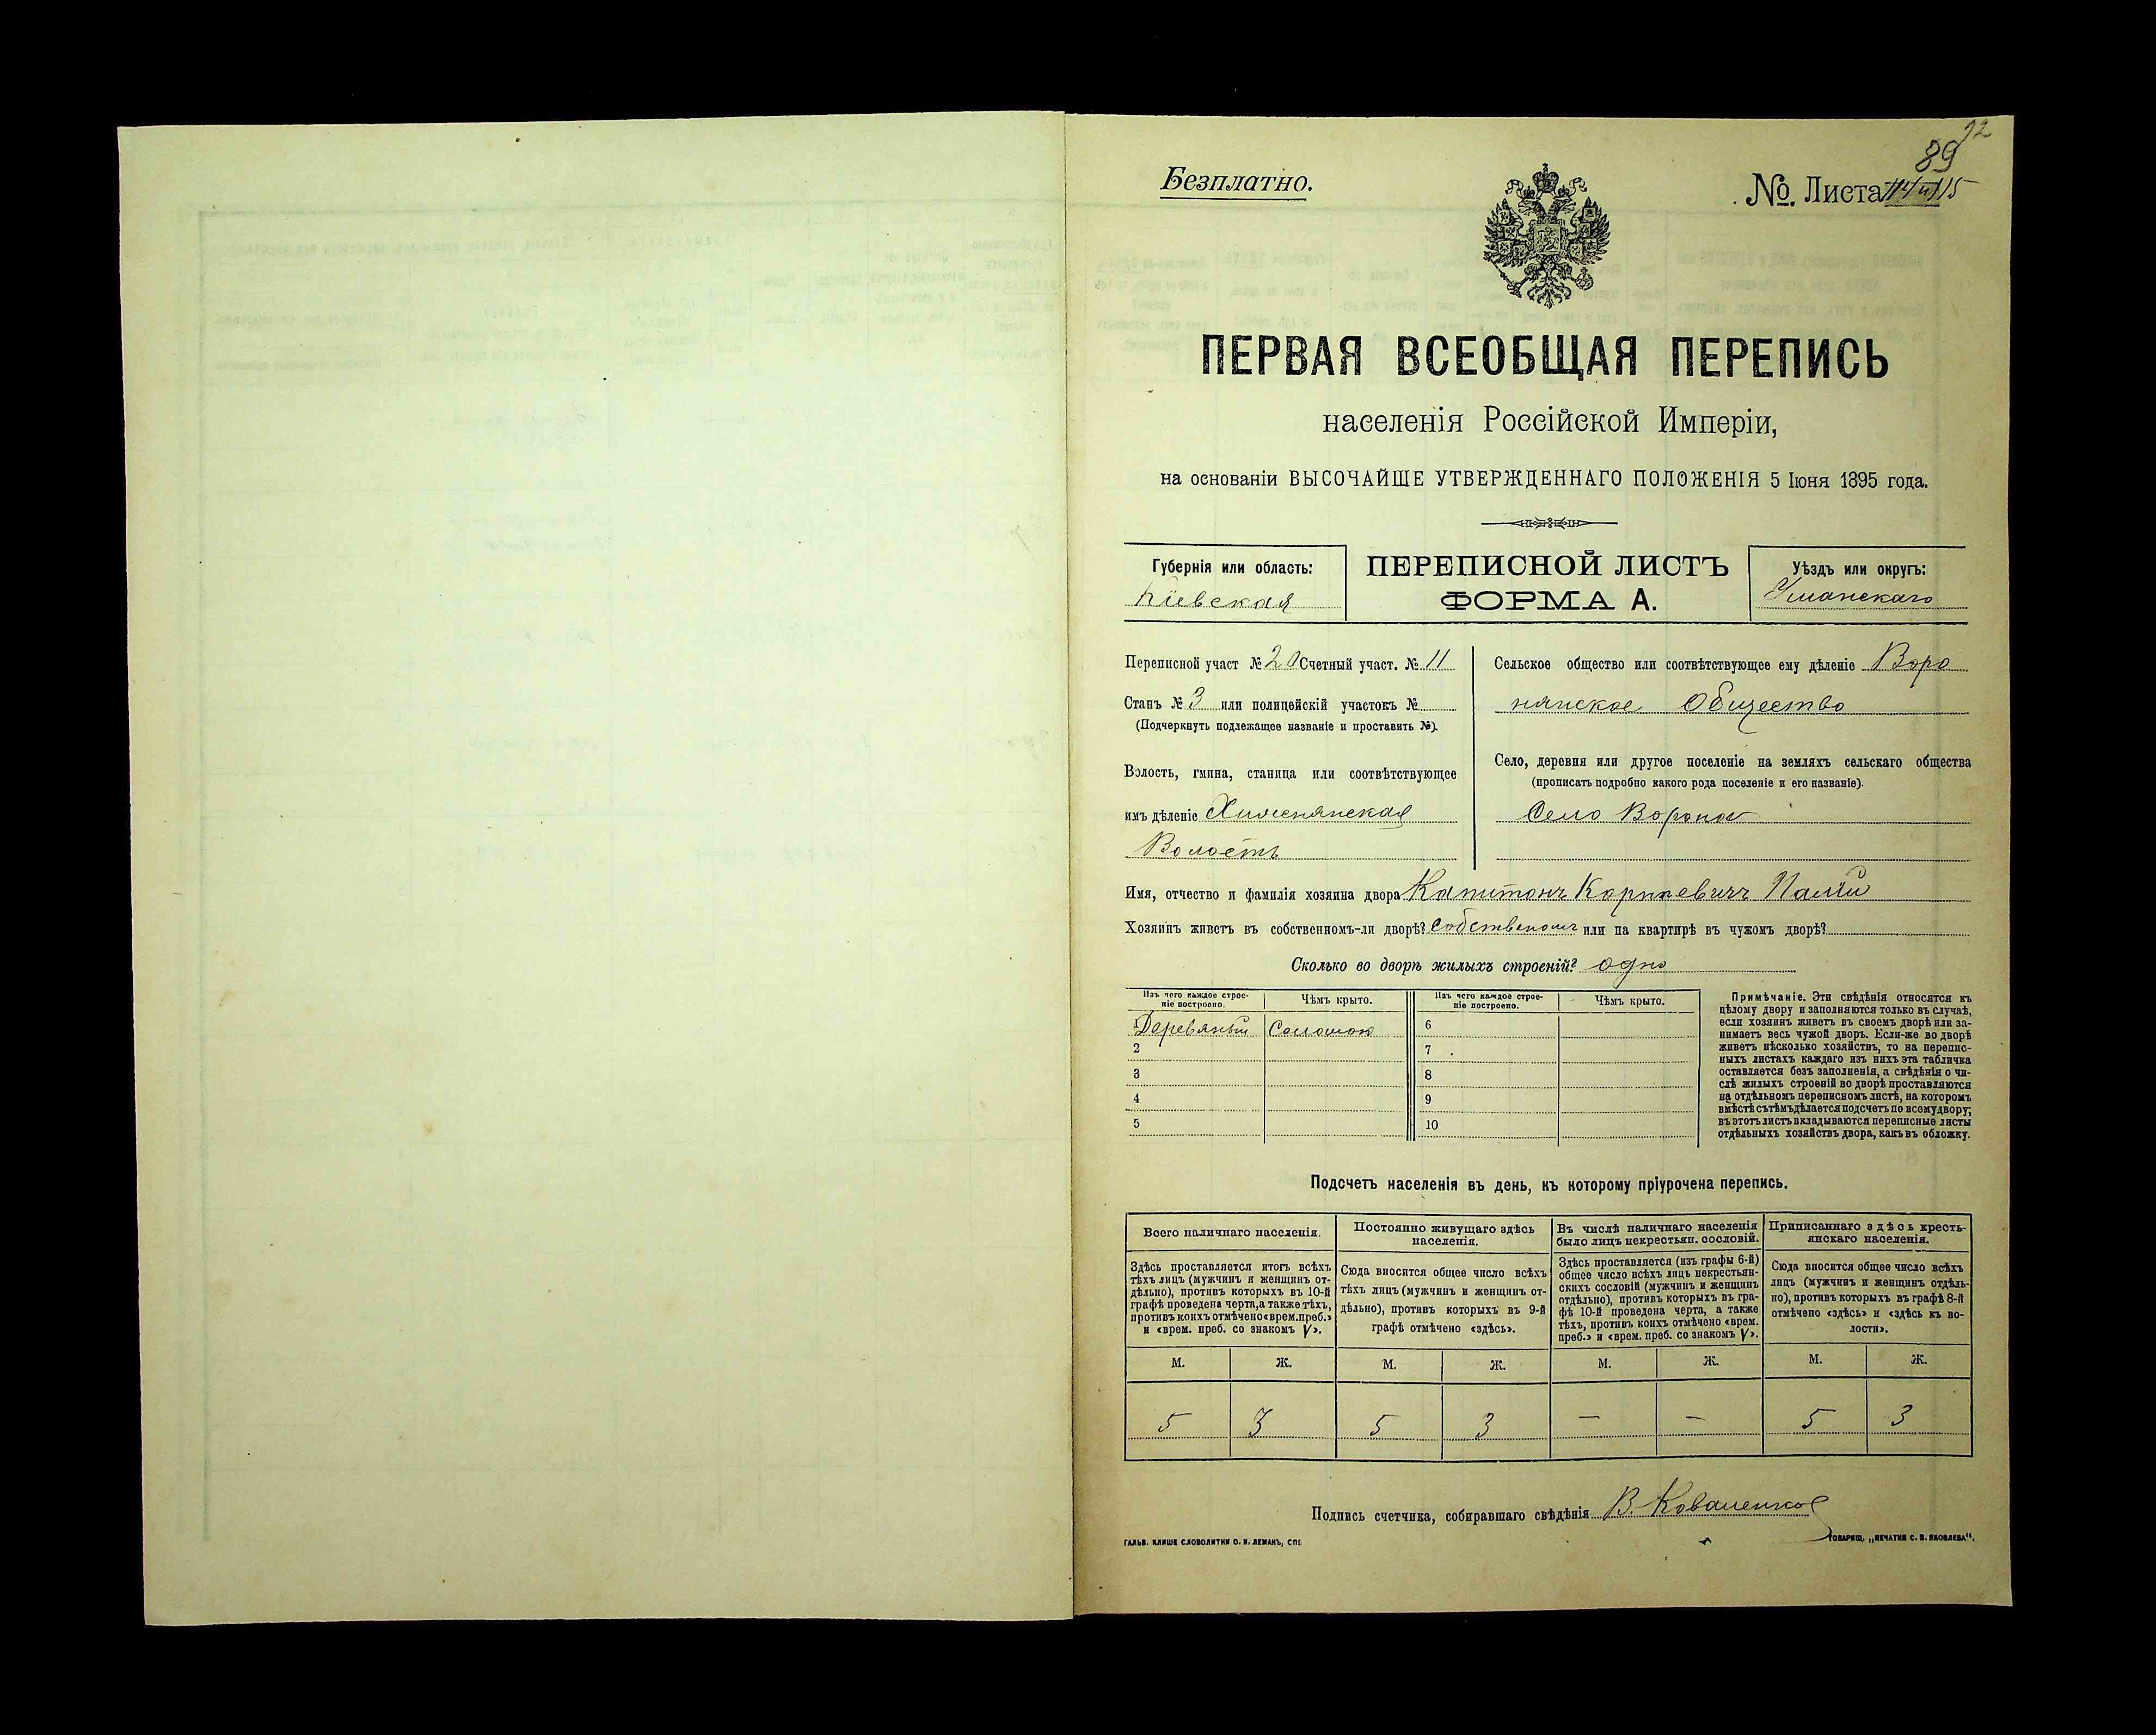 92
89
Безплатно.
№. Листа 114 и 115
ПЕРВАЯ ВСЕОБЩАЯ ПЕРЕПИСЬ
населенія Россійской Имперіи,
на основаніи ВЫСОЧАЙШЕ УТВЕРЖДЕННАГО ПОЛОЖЕНІЯ 5 Іюня 1895 года.
Губернія или область:
Кіевская
ПЕРЕПИСНОЙ ЛИСТЪ
ФОРМА А.
Уѣздъ или округъ:
Уманскаго
Переписной участ № 20 Счетный участ. № 11
Станъ № 3 или полицейскій участокъ №
(Подчеркнуть подлежащее названіе и проставить №).
Волость, гмина, станица или соотвѣтствующее
имъ дѣленіе
Волость
Сельское общество или соотвѣтствующее ему дѣленіе Воро
нянское Общество
Село, деревня или другое поселеніе на земляхъ сельскаго общества
(прописать подробно какого рода поселеніе и его названіе).
Село Вороное
Имя, отчество и фамилія хозяина двора Капитонъ Карпаевичъ Палій
Хозяинъ живетъ въ собственномъ-ли дворѣ? Собственомъ или на квартирѣ въ чужомъ дворѣ?
Сколько во дворѣ жилыхъ строеній? одно
Изъ чего каждое строеніе построено.
Чѣмъ крыто.
Изъ чего каждое строеніе построено.
Чѣмъ крыто.
1 Деревяный Соломою 6
2 7
3 8
4 9
5 10
Примѣчаніе. Эти свѣдѣнія относятся къ
цѣлому двору и заполняются только въ случаѣ,
если хозяинъ живетъ въ своемъ дворѣ или за-
нимаетъ весь чужой дворъ. Если-же во дворѣ
живетъ нѣсколько хозяйствъ, то на перепис-
ныхъ листахъ каждаго изъ нихъ эта табличка
оставляется безъ заполненія, а свѣдѣнія о чи-
слѣ жилыхъ строеній во дворѣ проставляются
на отдѣльномъ переписномъ листѣ, на которомъ
вмѣстѣ съ тѣмъ дѣлается подсчетъ по всему двору;
въ этотъ листъ вкладываются переписные листы
отдѣльныхъ хозяйствъ двора, какъ въ обложку.
Подсчетъ населенія въ день, къ которому пріурочена перепись.
Всего наличнаго населенія.
Здѣсь проставляется итогъ всѣхъ
тѣхъ лицъ (мужчинъ и женщинъ от-
дѣльно), противъ которыхъ въ 10-й
графѣ проведена черта, а также тѣхъ,
противъ коихъ отмѣчено «врем. преб.»
и «врем. преб. со знакомъ V».
Постоянно живущаго здѣсь
населенія.
Сюда вносится общее число всѣхъ
тѣхъ лицъ (мужчинъ и женщинъ от-
дѣльно), противъ которыхъ въ 9-й
графѣ отмѣчено «здѣсь».
Въ числѣ наличнаго населенія
было лицъ некрестьян. сословій.
Здѣсь проставляется (изъ графы 6-й)
общее число всѣхъ лицъ некрестьян-
скихъ сословій (мужчинъ и женщинъ
отдѣльно), противъ которыхъ въ гра-
фѣ 10-й проведена черта, а также
тѣхъ, противъ коихъ отмѣчено «врем.
преб.» и «врем. преб. со знакомъ V».
Приписаннаго здѣсь кресть-
янскаго населенія.
Сюда вносится общее число всѣхъ
лицъ (мужчинъ и женщинъ отдѣль-
но), противъ которыхъ въ графѣ 8-й
отмѣчено «здѣсь» и «здѣсь къ во-
лости».
М. Ж. М. Ж. М. Ж. М. Ж.
5 3 5 3 — — 5 3
Подпись счетчика, собиравшаго свѣдѣнія В. Коваленко
ГАЛЬВ. КЛИШЕ СЛОВОЛИТНИ О. И. ЛЕМАНЪ, СПБ
ТОВАРИЩ. „ПЕЧАТНЯ С. П. ЯКОВЛЕВА".